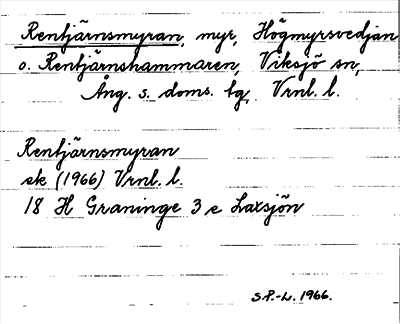 Rentjärnsmyran, myr, Högmyrsvedjan
o. Rentjärnshammaren, Viksjö sn,
Ång. s. doms. tg, Vrnl. l.
Rentjärnsmyran
ek (1966) Vrnl. l.
18 H Graninge 3 e Laxsjön
S.P.-L. 1966.